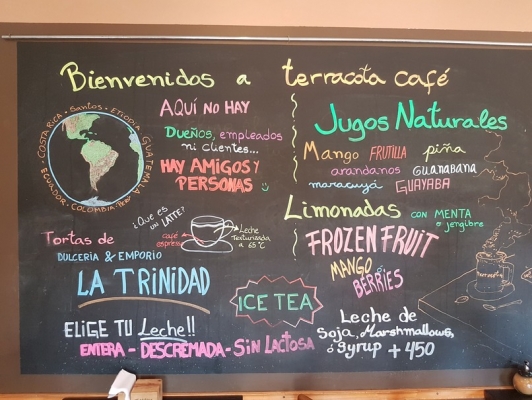 Bienvenidos a terracota café
COSTA RICA • Santos • ETIOPIA • GUATEMALA
ECUADOR • COLOMBIA • Perú
AQUÍ NO HAY
DUEÑOS, empleados
ni clientes...
HAY AMIGOS Y
PERSONAS
¿QUE ES
UN LATTE?
café
espresso
Leche
Texturizada
a 65°C
Tortas de
DULCERÍA & EMPORIO
LA TRINIDAD
ELIGE TU Leche!!
ENTERA - DESCREMADA - SIN LACTOSA
ICE TEA
Jugos Naturales
Mango FRUTILLA piña
arandanos GUANABANA
maracuyá GUAYABA
Limonadas CON MENTA
o jengibre
FROZEN FRUIT
MANGO
BERRIES
Leche de
Soja, Marshmallows,
ó Syrup + 450
terracota